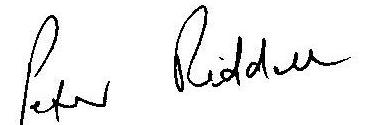 Peter Riddell